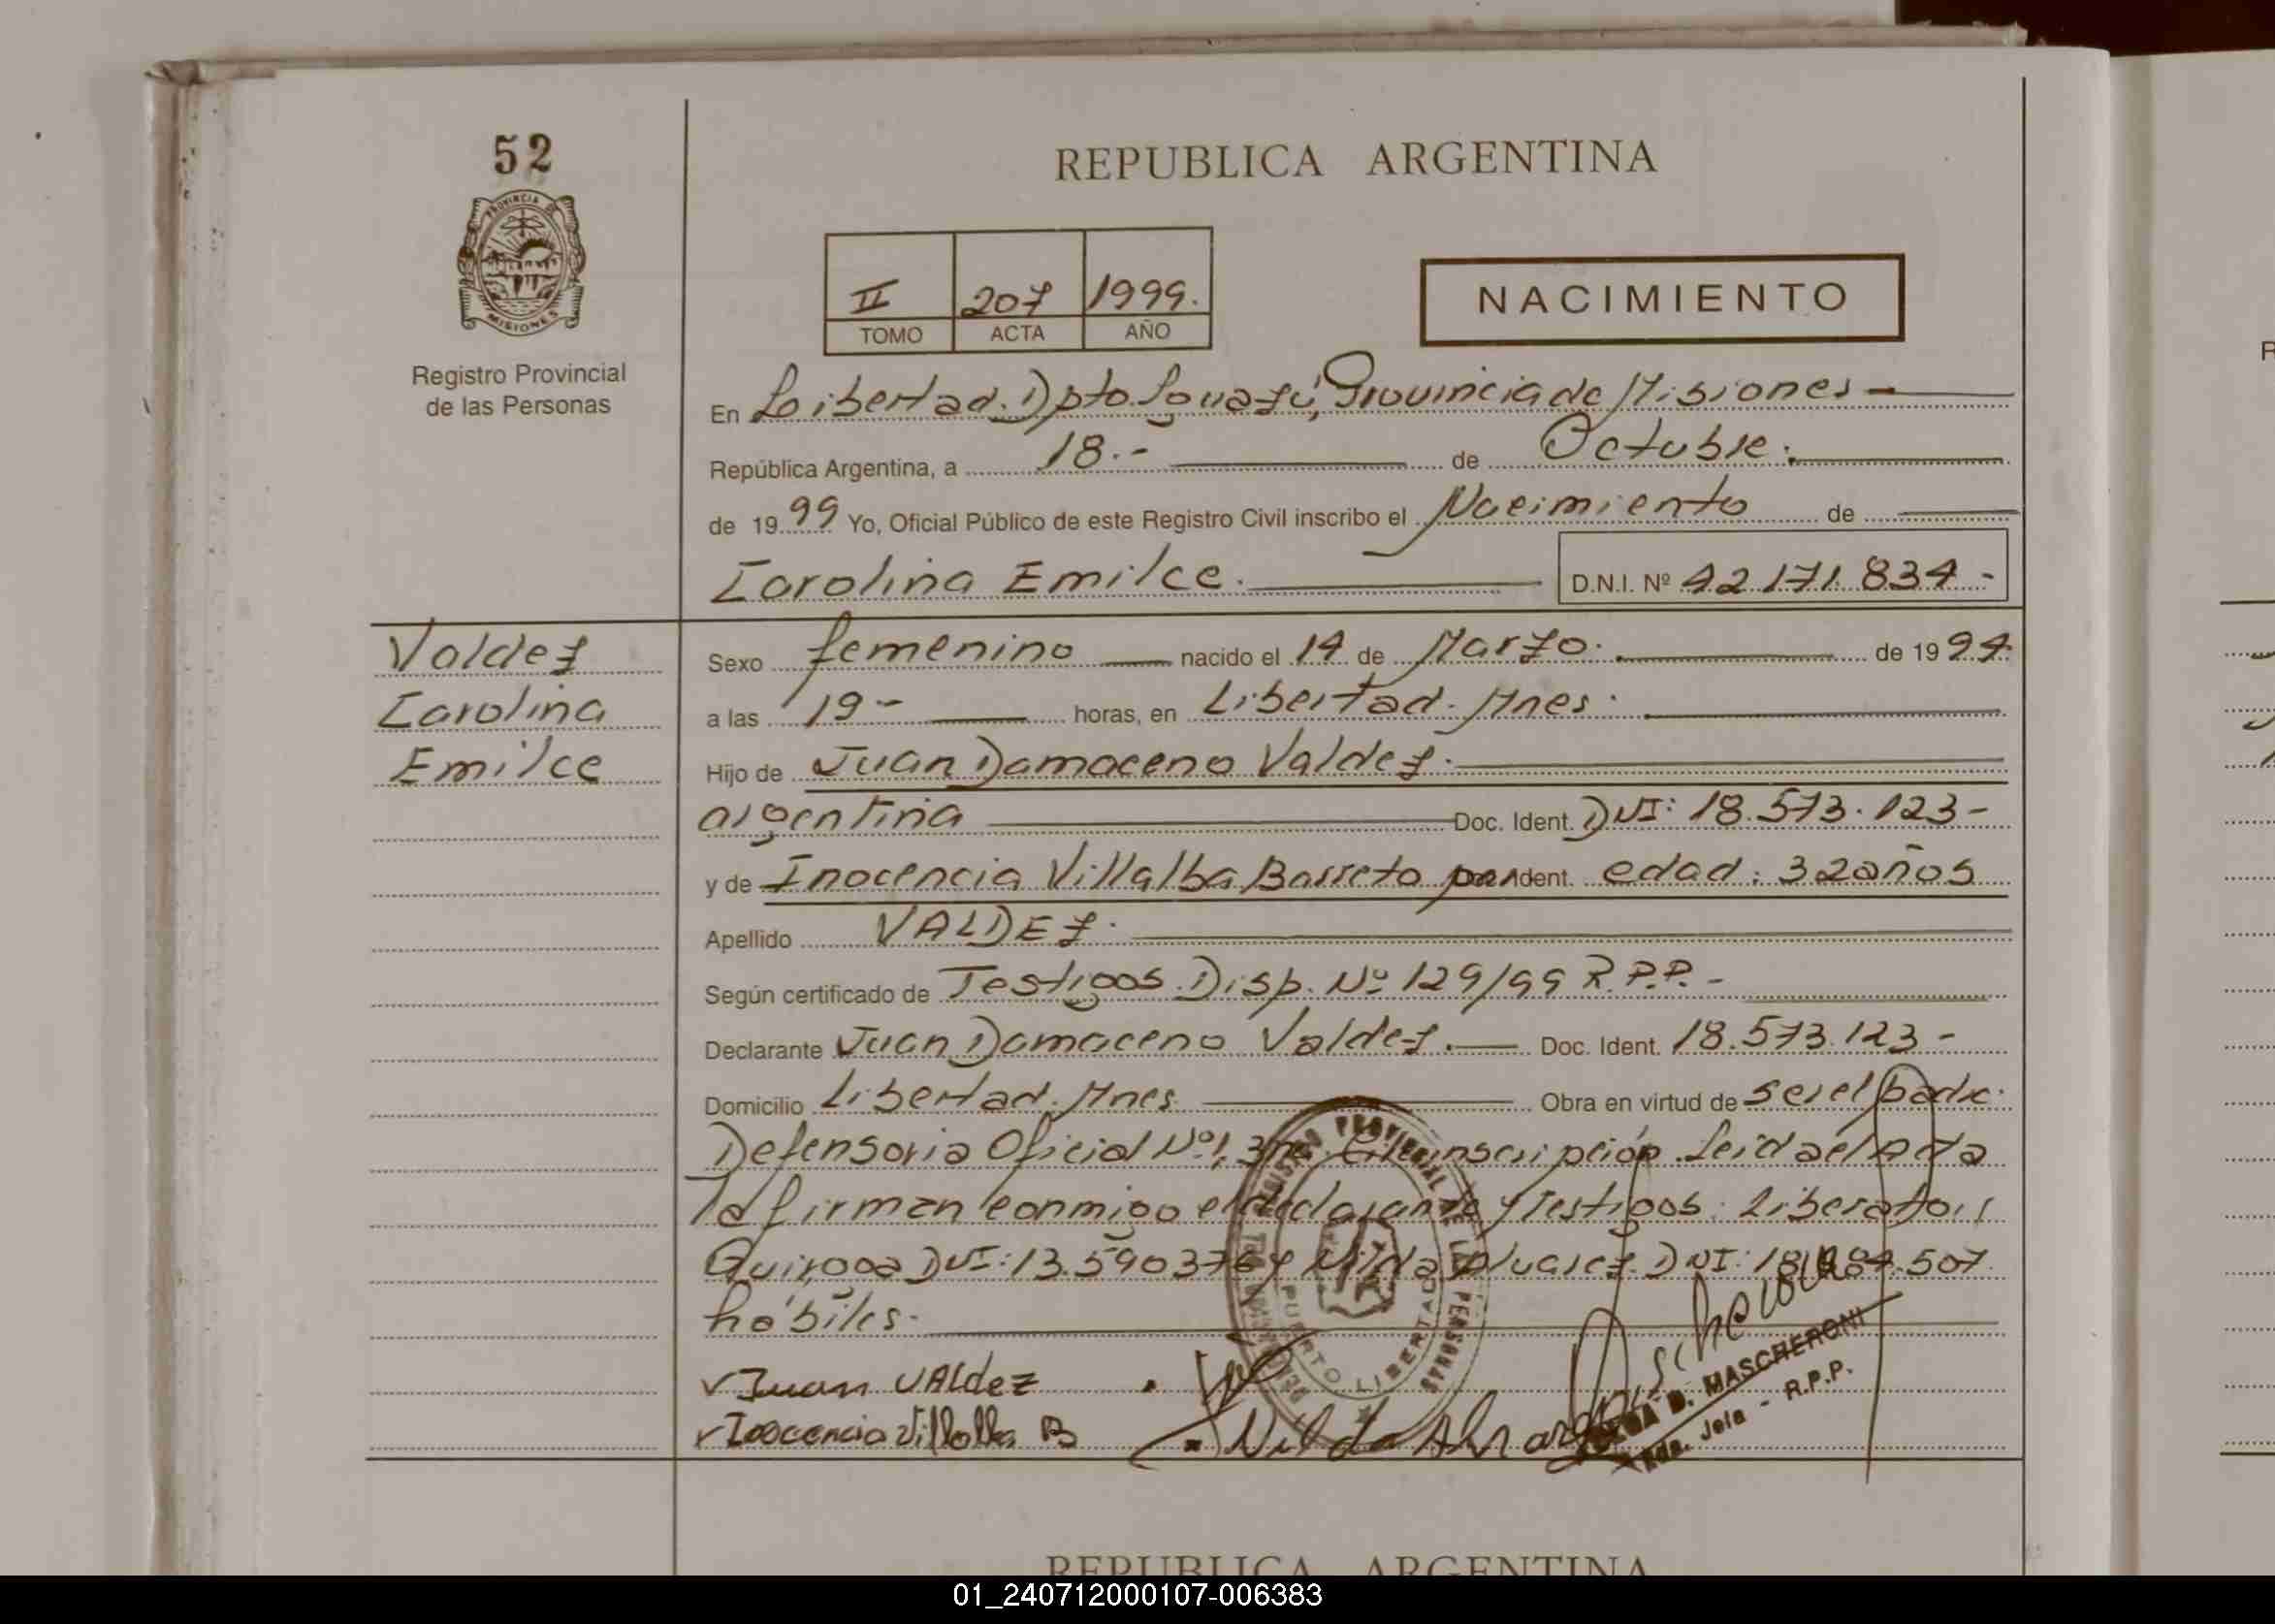 52
REPUBLICA ARGENTINA
PROVINCIA DE
MISIONES
Registro Provincial
de las Personas
II 207 1999.
TOMO ACTA AÑO
NACIMIENTO
En Libertad. Dpto. Iguazú, Provincia de Misiones-
República Argentina, a 18.- de Octubre.
de 1999 Yo, Oficial Público de este Registro Civil inscribo el Nacimiento de
Carolina Emilce. D.N.I. Nº 42.171.834-
Valdez
Carolina
Emilce
Sexo femenino nacido el 14 de Marzo. de 1994
a las 19- horas, en Libertad. Mnes.
Hijo de Juan Damaceno Valdez.
argentina Doc. Ident. DNI: 18.573.123-
y de Inocencia Villalba Barreto Ident. edad: 32 años
Apellido VALDEZ.
Según certificado de Testigos. Disp. Nº 129/99 R.P.P.-
Declarante Juan Damaceno Valdez. Doc. Ident. 18.573.123-
Domicilio Libertad. Mnes Obra en virtud de ser el padre.
Defensoria Oficial Nº1, 3ra. Circunscripción. Leida el Acta
la firman conmigo el declarante y Testigos:
Quiroga DNI: 13.590376 y Nilda Alvarez. DNI: 507.
hábiles.
Juan VALdez
Inocencia Villalba B
Nilda Alvarez
REGISTRO PROVINCIAL DE LAS PERSONAS
PUERTO LIBERTAD
D. MASCHERONI
Jefa - R.P.P.
REPUBLICA ARGENTINA
01_240712000107-006383